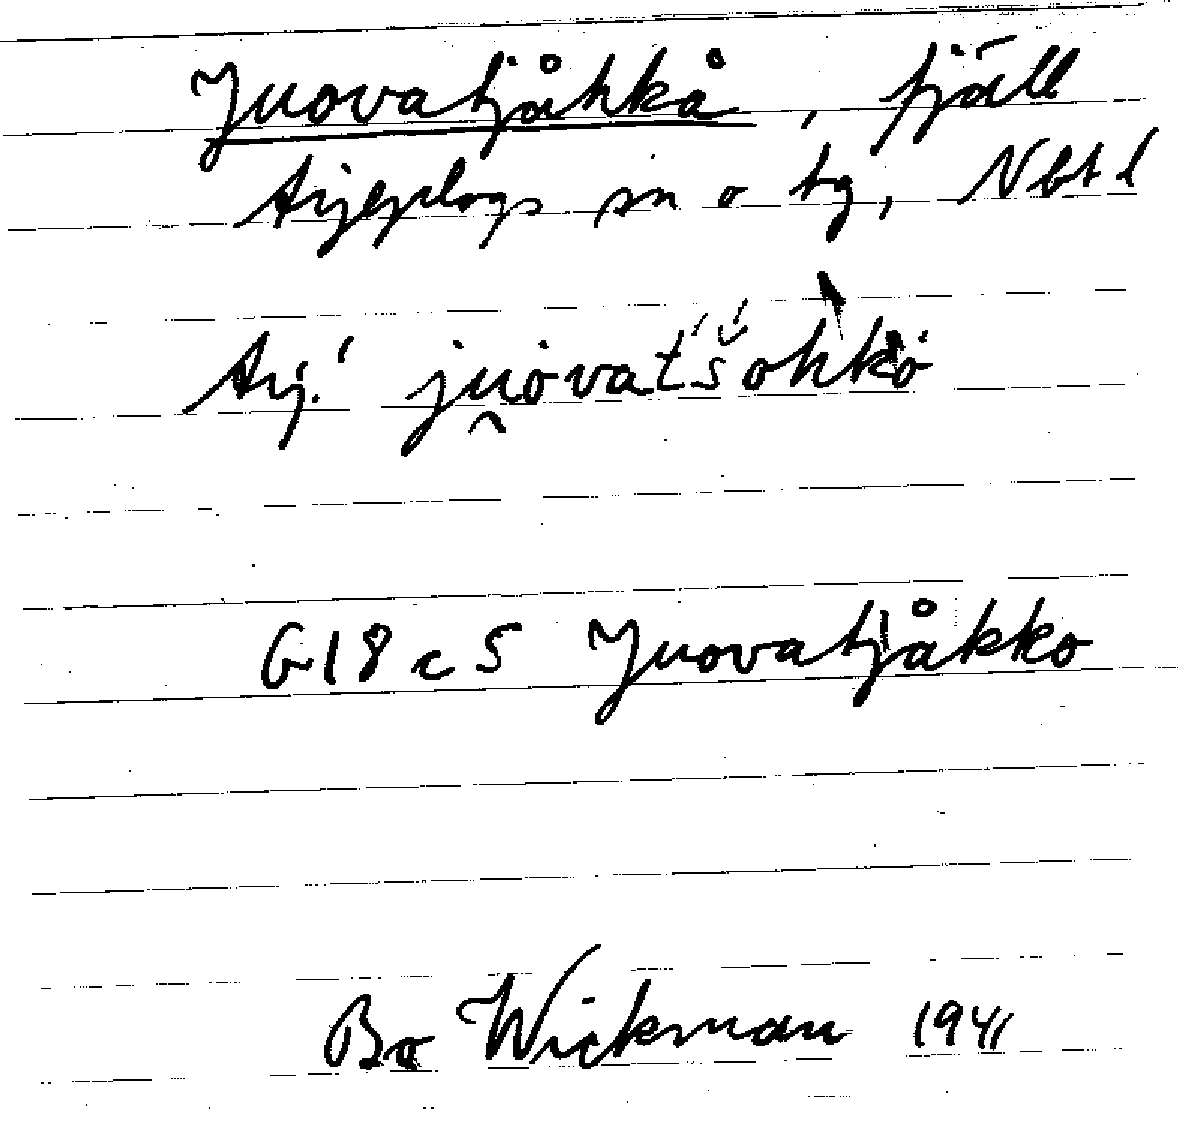 Juovatjåhkå, fjäll
Arjeplogs sn o tg, Nbt l
Arj. ju̯ȯvat́š́ohkȯ
G18 c 5 Juovatjåkko
Bo Wickman 1941